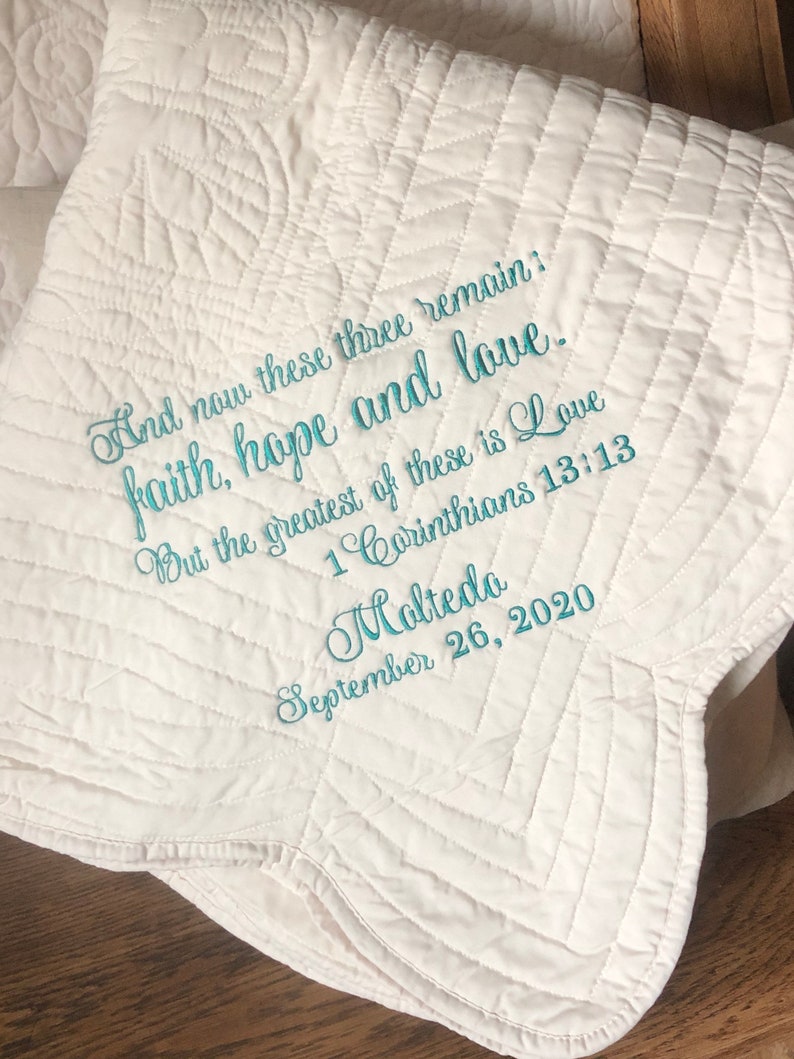 And now these three remain:
faith, hope and love.
But the greatest of these is Love
1 Corinthians 13:13
Maltedo
September 26, 2020